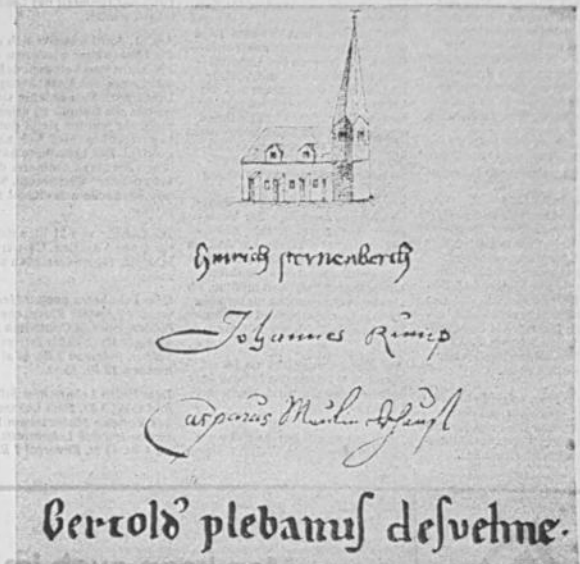 Hinrich sternenberch
Johannes Rump
Casparus
Bertold' plebanuſ deſvehne.